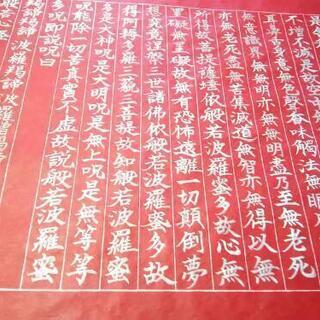 不增不減是故空中無
耳鼻舌身意無色聲香味觸法無眼
無意識界無無明亦無無明盡乃至無老死
亦無老死盡無苦集滅道無智亦無得以無
所得故菩提薩埵依般若波羅蜜多故心無
罣礙無罣礙故無有恐怖遠離一切顛倒夢
想究竟涅槃三世諸佛依般若波羅蜜多故
得阿耨多羅三藐三菩提故知般若波羅蜜
多是大神呪是大明呪是無上呪是無等等
呪能除一切苦真實不虛故說般若波羅蜜
多呪即說呪曰
羯諦羯諦波羅羯諦波羅僧羯諦